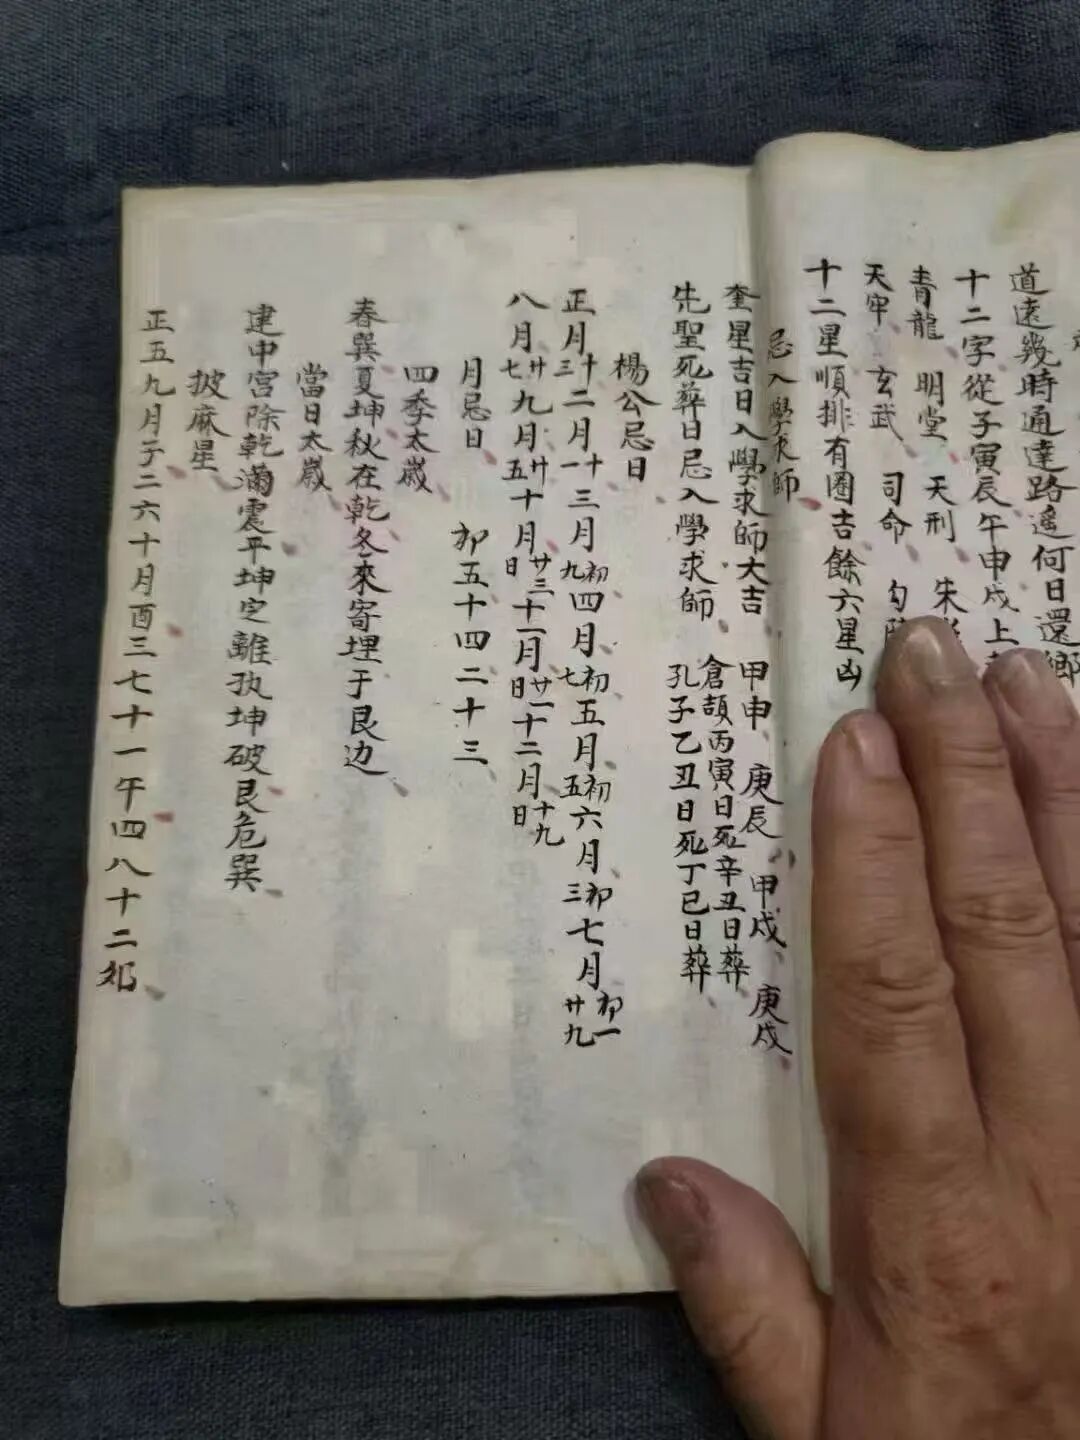 道遠幾時通達路遙何日還鄉
十二字從子寅辰午申戌上
青龍 明堂 天刑 朱
天牢 玄武 司命 勾
十二星順排有圈吉餘六星凶
忌入學求師
奎星吉日入學求師大吉 甲申 庚辰 甲戌 庚戌
先聖死葬日忌入學求師 倉頡丙寅日死辛丑日葬
孔子乙丑日死丁巳日葬
楊公忌日
正月十三二月十一三月初九四月初七五月初五六月初三七月初一廿九
八月廿七九月廿五十月廿三日十一月廿一日十二月十九日
月忌日 初五十四二十三
四季太歲
春巽夏坤秋在乾冬來寄埋于艮边
當日太歲
建中宮除乾滿震平坤定離执坤破艮危巽
披麻星
正五九月子二六十月酉三七十一午四八十二夘